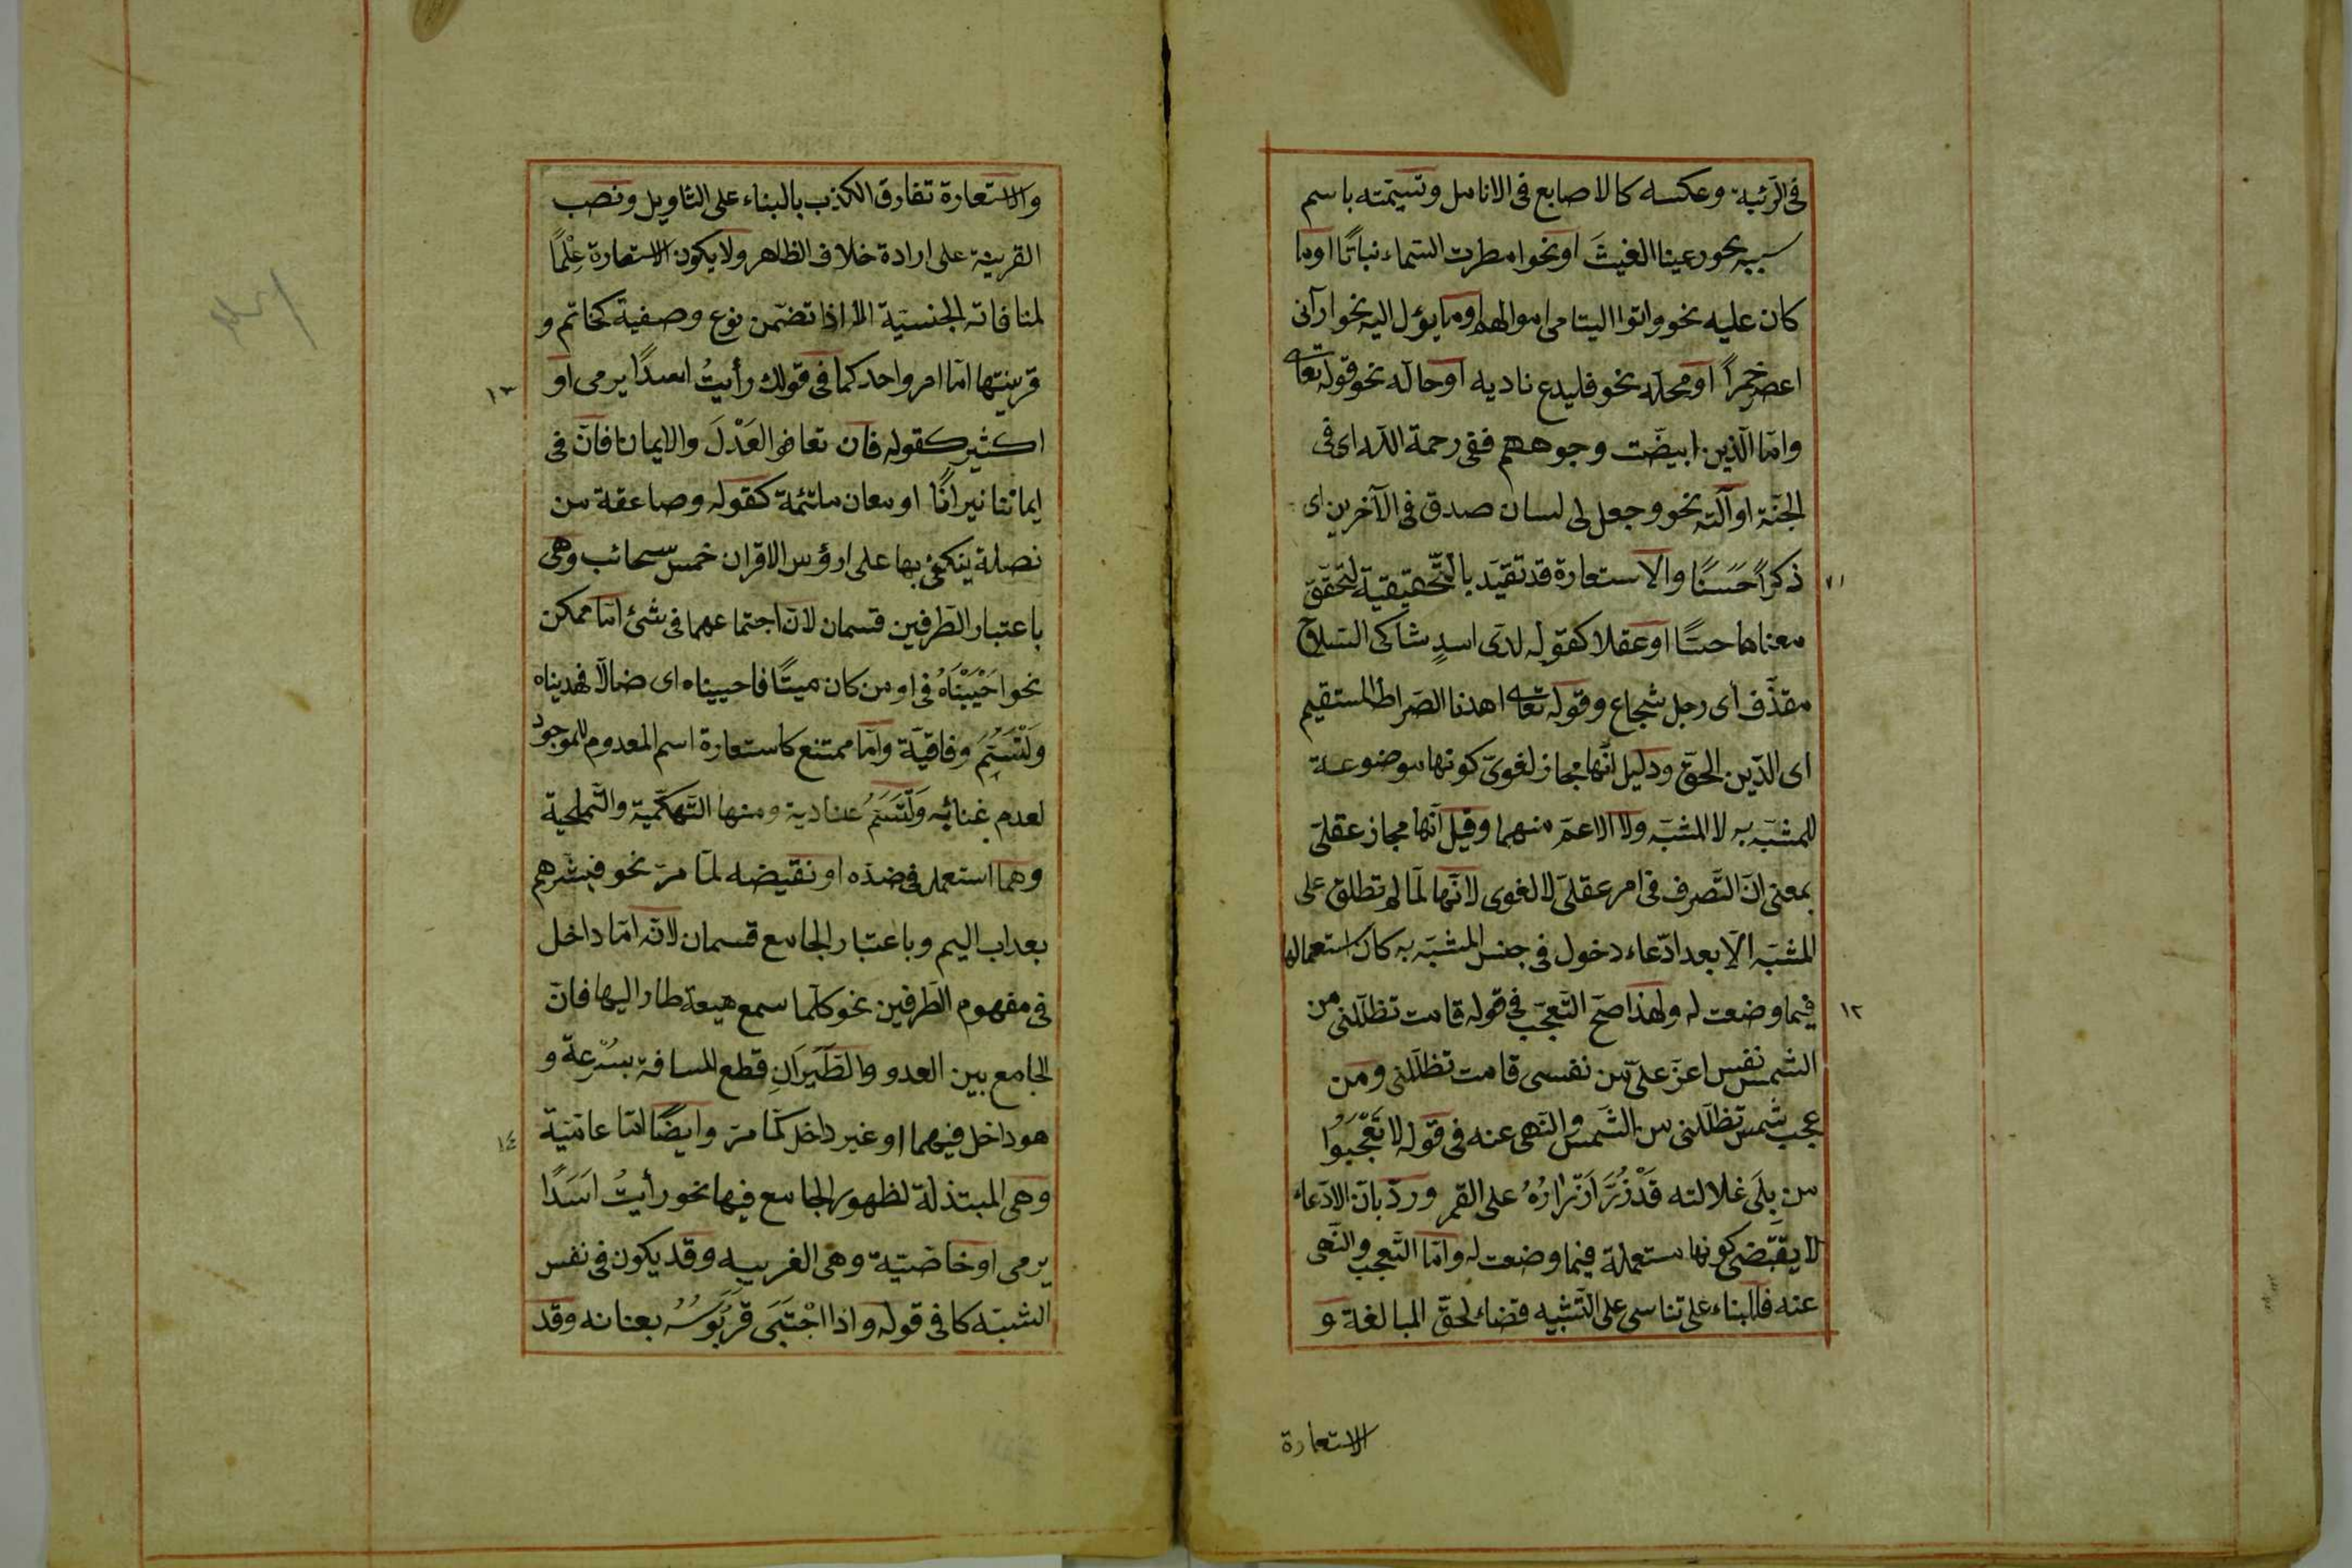 فى الرئية وعكسه كالاصابع فى الانامل وتسيمته باسم
سببه نحو رعينا الغيثَ او نحو امطرت السّماء نباتًا او ما
كان عليه نحو واتوا اليتامى اموالهم او ما يؤل اليه نحو ارآنى
اعصر خمراً او محلّه نحو فليدع ناديه او حالّه نحو قوله تعا
وامّا الّذين ابيضّت وجوههم ففى رحمة اللّه اى فى
الجنّة او آلته نحو وجعل لى لسان صدق فى الآخرين اى
ذكراً حَسَنًا والاستعارة قد تقيّد بالتّحقيقية لتحقّق
معناها حسًّا او عقلا كقوله لدى اسدٍ شاكى السّلاح
مقذَّف اى رجل شجاع وقوله تعا اهدنا الصّراط المستقيم
اى الدّين الحقّ ودليل انّها مجاز لغوىّ كونها موضوعة
للمشبّه به لا المشبّه ولا الاعمّ منهما وقيل انّها مجاز عقلىّ
بمعنى انّ التّصرف فى امر عقلىّ لا لغوى لانّها لمّا لم تطلق على
المشبّه الّا بعد ادّعاء دخول فى جنس المشبّه به كان استعمالها
فيما وضعت له ولهذا صحّ التّعجّب فى قوله قامت تظلّلنى من
الشمس نفس اعزّ علىّ من نفسى قامت تظلّلنى ومن
عجب شمس تظلّلنى من الشّمس والنّهى عنه فى قوله لا تَعْجَبُوا
من بِلَى غلالته قَدْ زُرَّ اَزْرارُهُ على القمر وردّ بانّ الادّعاء
لا يقتضى كونها مستعملة فيما وضعت له وامّا التّعجب والنّهى
عنه فللبناء على تناسى على التّشبيه قضاء لحقّ المبالغة و
الاستعارة
١١
١٢
والاستعارة تفارق الكذب بالبناء على التأويل ونصب
القرينة على ارادة خلاف الظاهر ولا يكون الاستعارة عِلْمًا
لمنافاته الجنسيّة الّا اذا تضمّن نوع وصفية كحاتم و
قرينتها امّا امر واحد كما فى قولك رأيتُ اسدًا يرمى او
اكثير كقوله فان تعافوا العَدْلَ والايمانا فانّ فى
ايماننا نيرانًا او معان ملتئمة كقوله وصاعقة من
نصلة ينكفئ بها على ارؤس الاقران خمس سحائب وهى
باعتبار الطّرفين قسمان لانّ اجتماعهما فى شئ امّا ممكن
نحو احْيَيْنَاهُ فى او من كان ميتًا فاحييناه اى ضالّا فهديناه
وَلْتُسَمَّ وفاقيّة وامّا ممتنع كاستعارة اسم المعدوم للموجود
لعدم غنائه وَلْتُسَمَّ عنادية ومنها التّهكّمية والتّمليحية
وهما استعمل فى ضدّه او نقيضه لمّا مرّ نحو فبشّرهم
بعذاب اليم وباعتبار الجامع قسمان لانّه امّا داخل
فى مفهوم الطّرفين نحو كلّما سمع هيعة طار اليها فانّ
الجامع بين العدو والطَّيَرَانِ قطع المسافة بسُرْعة و
هو داخل فيهما او غير داخل كما مرّ وايضًا امّا عامّيّة
وهى المبتذلة لظهور الجامع فيها نحو رأيتُ اَسَدًا
يرمى او خاصّيّة وهى الغريبه وقد يكون فى نفس
الشبّه كما فى قوله واذا اجْتَبَى قَرَبُوسُهُ بعنانه وقد
١٣
١٤